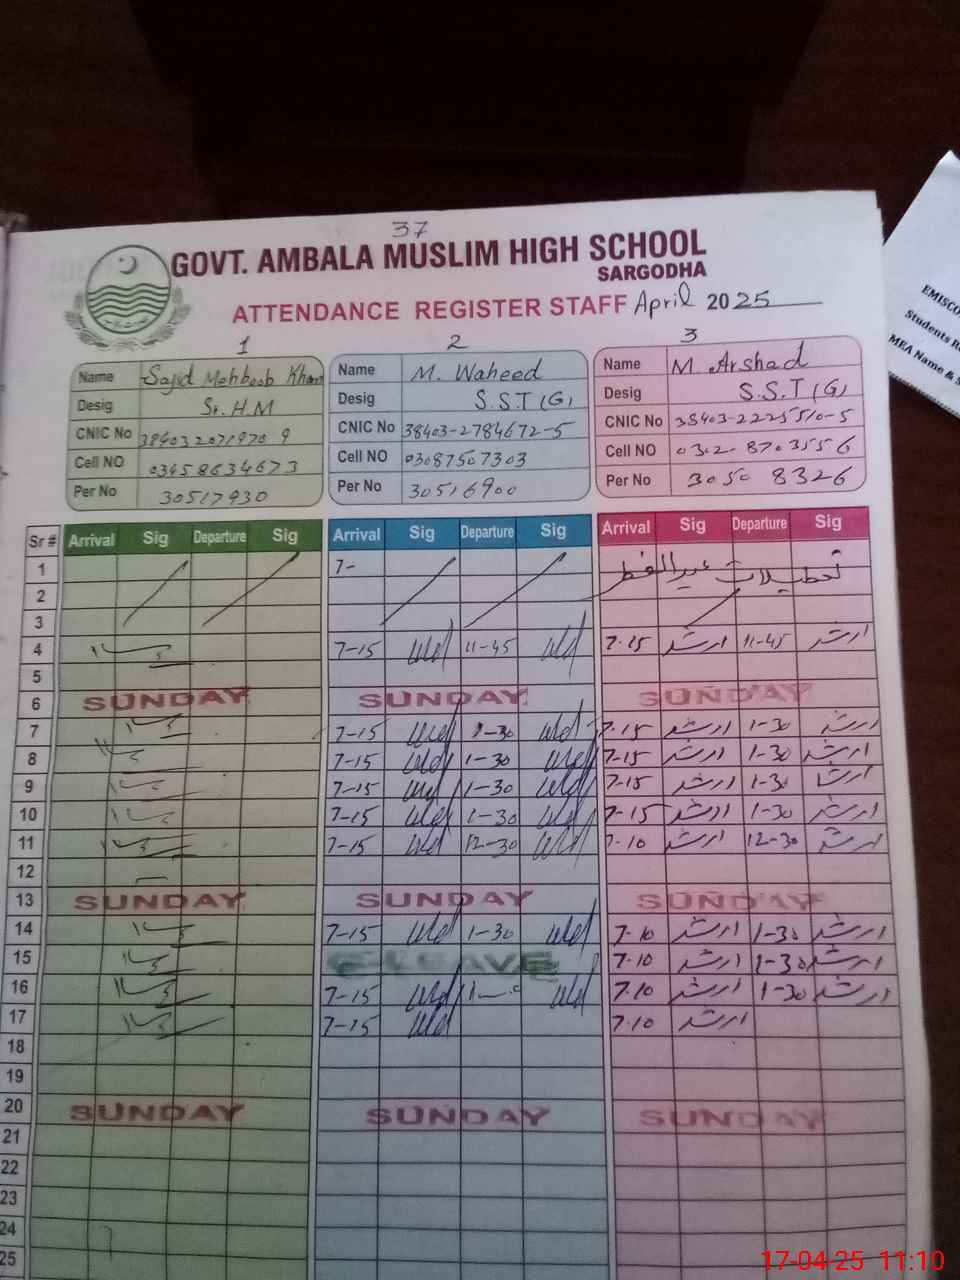 37
GOVT. AMBALA MUSLIM HIGH SCHOOL
SARGODHA
ATTENDANCE REGISTER STAFF April 2025
1 2 3
Name Sajid Mehboob Khan Name M. Waheed Name M. Arshad
Desig Sr. H.M Desig S.S.T (G) Desig S.S.T (G)
CNIC No CNIC No 38403-2784672-5 CNIC No 38403-2225510-5
Cell NO 03458634673 Cell NO 03087507303 Cell NO 0302-8703556
Per No 30517930 Per No 30516900 Per No 3050 8326
Sr # Arrival Sig Departure Sig Arrival Sig Departure Sig Arrival Sig Departure Sig
1 7- تعطیلات عید الفطر
2
3
4 7-15 11-45 7-15 ارشد 11-45 ارشد
5
6 SUNDAY SUNDAY SUNDAY
7 7-15 1-30 7-15 ارشد 1-30 ارشد
8 7-15 1-30 7-15 ارشد 1-30 ارشد
9 7-15 1-30 7-15 ارشد 1-30 ارشد
10 7-15 1-30 7-15 ارشد 1-30 ارشد
11 7-15 12-30 7-10 ارشد 12-30 ارشد
12
13 SUNDAY SUNDAY SUNDAY
14 7-15 1-30 7-10 ارشد 1-30 ارشد
15 LEAVE 7-10 ارشد 1-30 ارشد
16 7-15 7-10 ارشد 1-30 ارشد
17 7-15 7-10 ارشد
18
19
20 SUNDAY SUNDAY SUNDAY
21
22
23
24
25
EMISCO
Students R
MEA Name & S
17-04-25 11:10